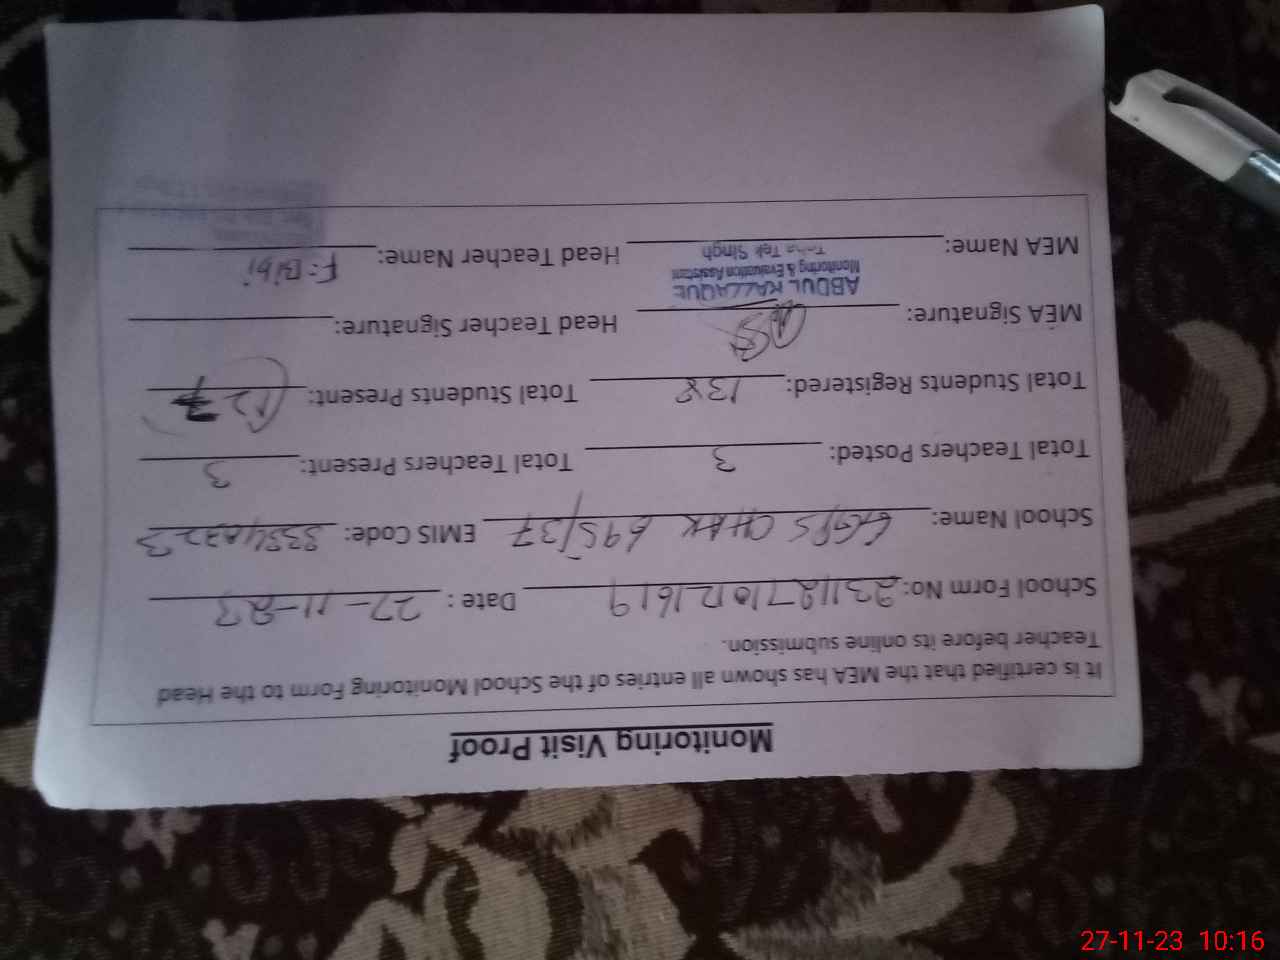 Monitoring Visit Proof
It is certified that the MEA has shown all entries of the School Monitoring Form to the Head
Teacher before its online submission.
School Form No: Date: 27-11-23
School Name: GGPS CHAK 695/37 EMIS Code:
Total Teachers Posted: 3 Total Teachers Present: 3
Total Students Registered: 138 Total Students Present: 127
MEA Signature: Head Teacher Signature:
ABDUL KHALIQUE
Monitoring & Evaluation Assistant
Toba Tek Singh
F. Bibi
MEA Name: Head Teacher Name:
27-11-23 10:16